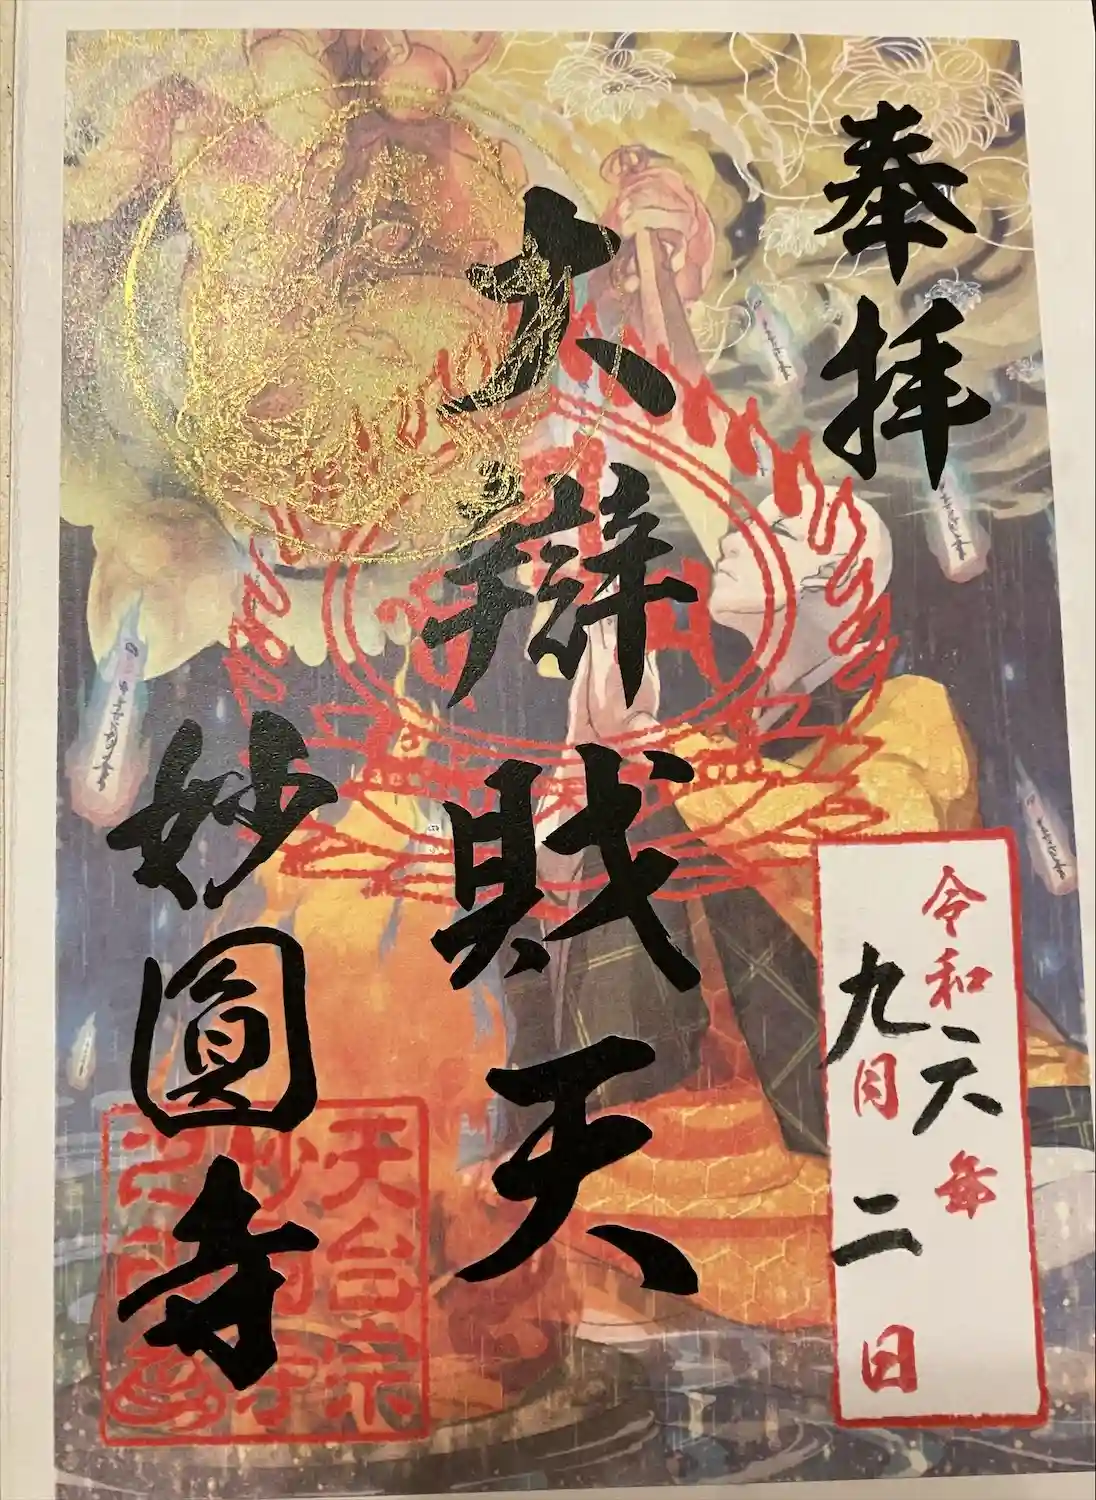 奉拝
令和六年
九月二日
大辨財天
妙圓寺
天台宗